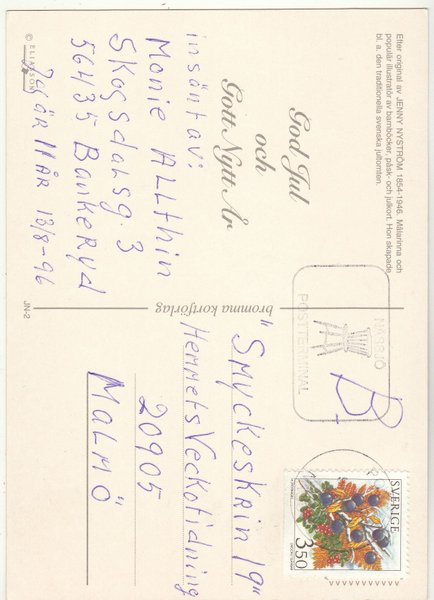 Efter original av JENNY NYSTRÖM 1854-1946. Målarinna och
populär illustratör av barnböcker, påsk- och julkort. Hon skapade
bl. a. den traditionella svenska jultomten.
God Jul
och
Gott Nytt År
insänt av:
Monie Allthin
Skogsdalsg. 3
56435 Bankeryd
Jag är 11 år 13/8-96
© ELIASSON
JN-2
bromma kortförlag
POSTTERMINAL
B
SVERIGE
3.50
"SMyCKESKRIN 19"
HEMMETSVECKOTIDNING
20905
MALMÖ